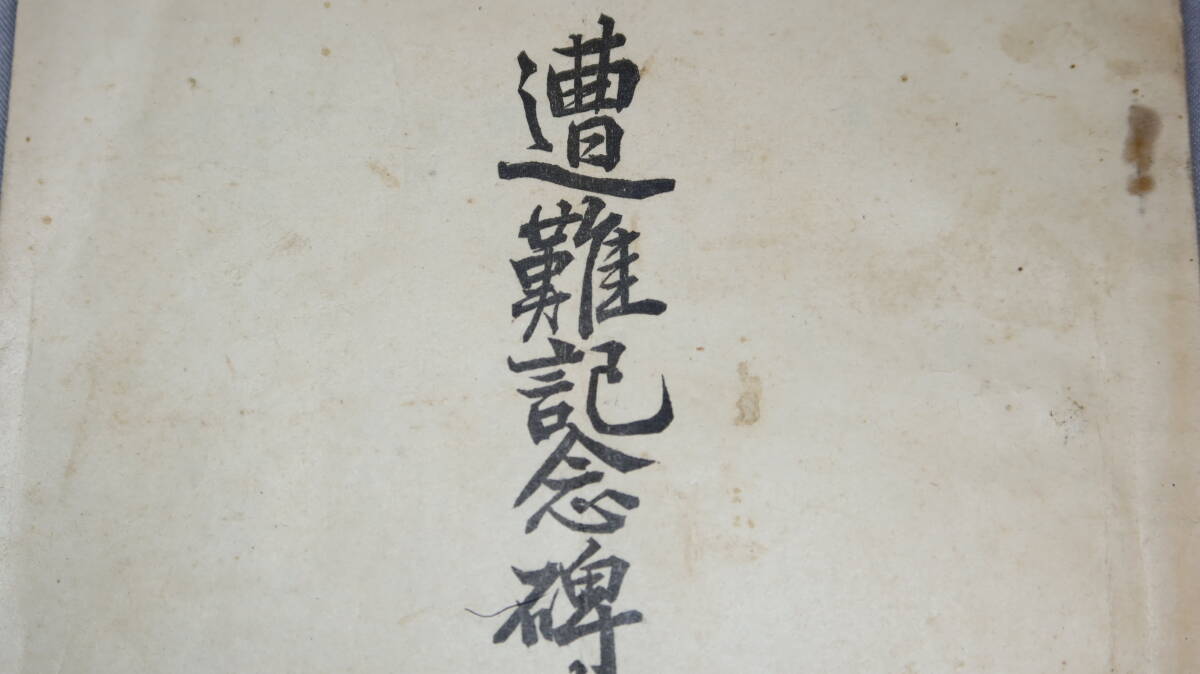 遭難記念碑